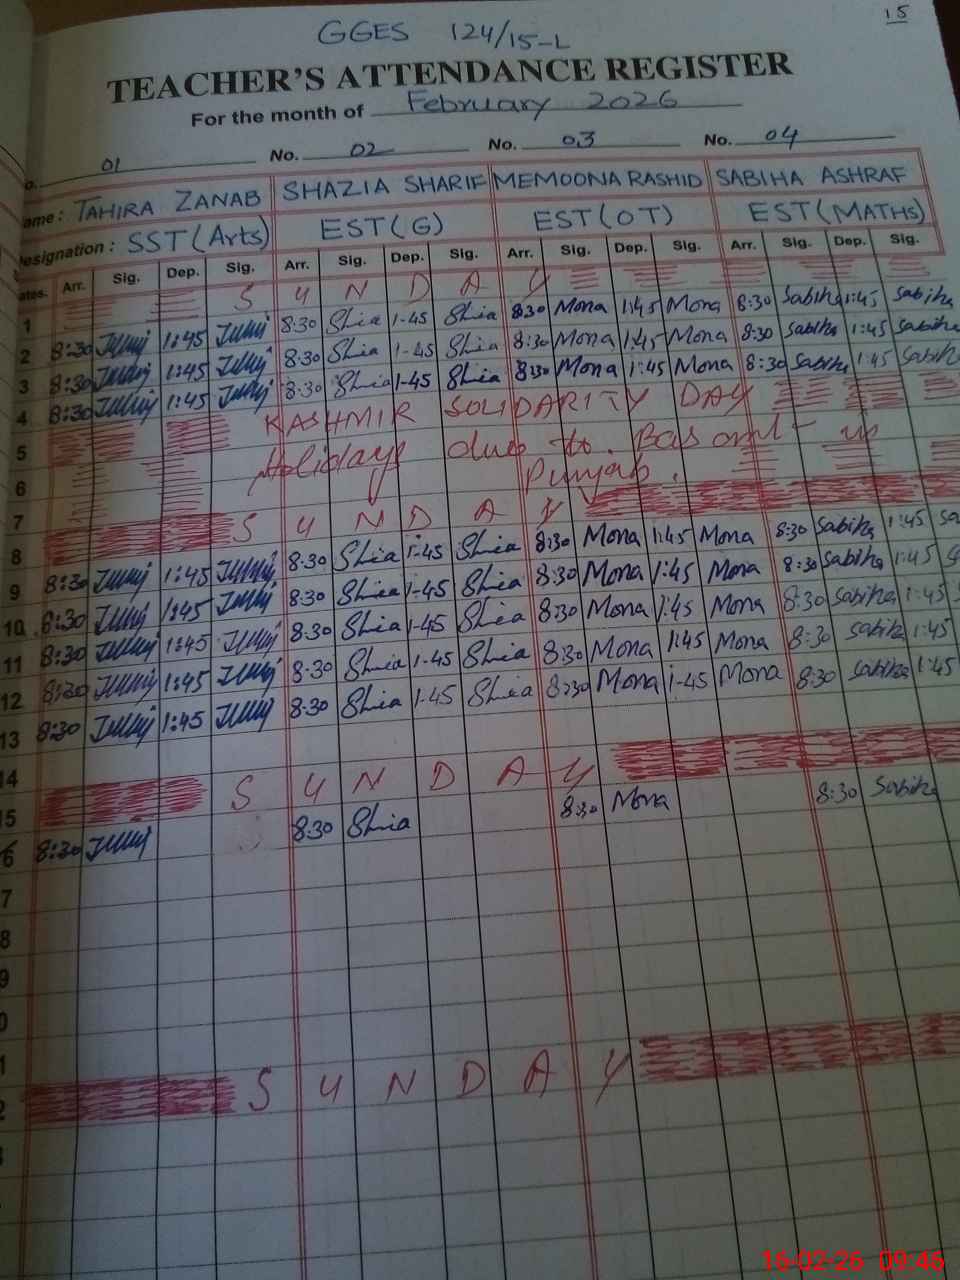 15
GGES 124/15-L
TEACHER'S ATTENDANCE REGISTER
For the month of February 2026
01 No. 02 No. 03 No. 04
ame: TAHIRA ZANAB SHAZIA SHARIF MEMOONA RASHID SABIHA ASHRAF
esignation: SST(Arts) EST(G) EST(OT) EST(MATHS)
ates. Arr. Sig. Dep. Sig. Arr. Sig. Dep. Sig. Arr. Sig. Dep. Sig. Arr. Sig. Dep. Sig.
1 S U N D A Y
2 8:30 1:45 8:30 Shia 1-45 Shia 8:30 Mona 1:45 Mona 8:30 Sabiha 1:45 Sabiha
3 8:30 1:45 8:30 Shia 1-45 Shia 8:30 Mona 1:45 Mona 8:30 Sabiha 1:45 Sabiha
4 8:30 1:45 8:30 Shia 1-45 Shia 8:30 Mona 1:45 Mona 8:30 Sabiha 1:45 Sabiha
5 KASHMIR SOLIDARITY DAY
6 Holidays due to Basant in
7 Punjab.
8 S U N D A Y
9 8:30 1:45 8:30 Shia 1-45 Shia 8:30 Mona 1:45 Mona 8:30 Sabiha 1:45 Sa
10 8:30 1:45 8:30 Shia 1-45 Shia 8:30 Mona 1:45 Mona 8:30 Sabiha 1:45 S
11 8:30 1:45 8:30 Shia 1-45 Shia 8:30 Mona 1:45 Mona 8:30 Sabiha 1:45 S
12 8:30 1:45 8:30 Shia 1-45 Shia 8:30 Mona 1:45 Mona 8:30 Sabiha 1:45
13 8:30 1:45 8:30 Shia 1-45 Shia 8:30 Mona 1-45 Mona 8:30 Sabiha 1:45
14
15 S U N D A Y
6 8:30 8:30 Shia 8:30 Mona 8:30 Sabiha
7
8
9
0
1
2 S U N D A Y
16-02-26 09:46